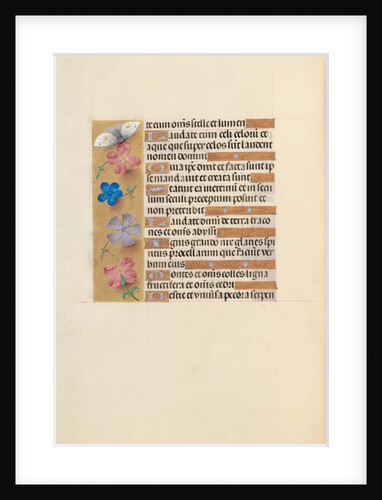 te eum om̄s stelle et lumen
Laudate eum celi celorū et
aque que super celos sūt laudent
nomen domini
Quia ip̄e dixit et facta sunt ip̄
se mandavit et creata sunt
Statuit ea in eternū et in secu
lum seculi preceptum posuit et
non preteribit
Laudate dn̄m de terra draco
nes et om̄s abyssi
Ignis grando nix glacies spi
ritus procellarum que faciūt ver
bum eius
Montes et om̄s colles ligna
fructifera et om̄s cedri
Bestie et universa pecora serpen